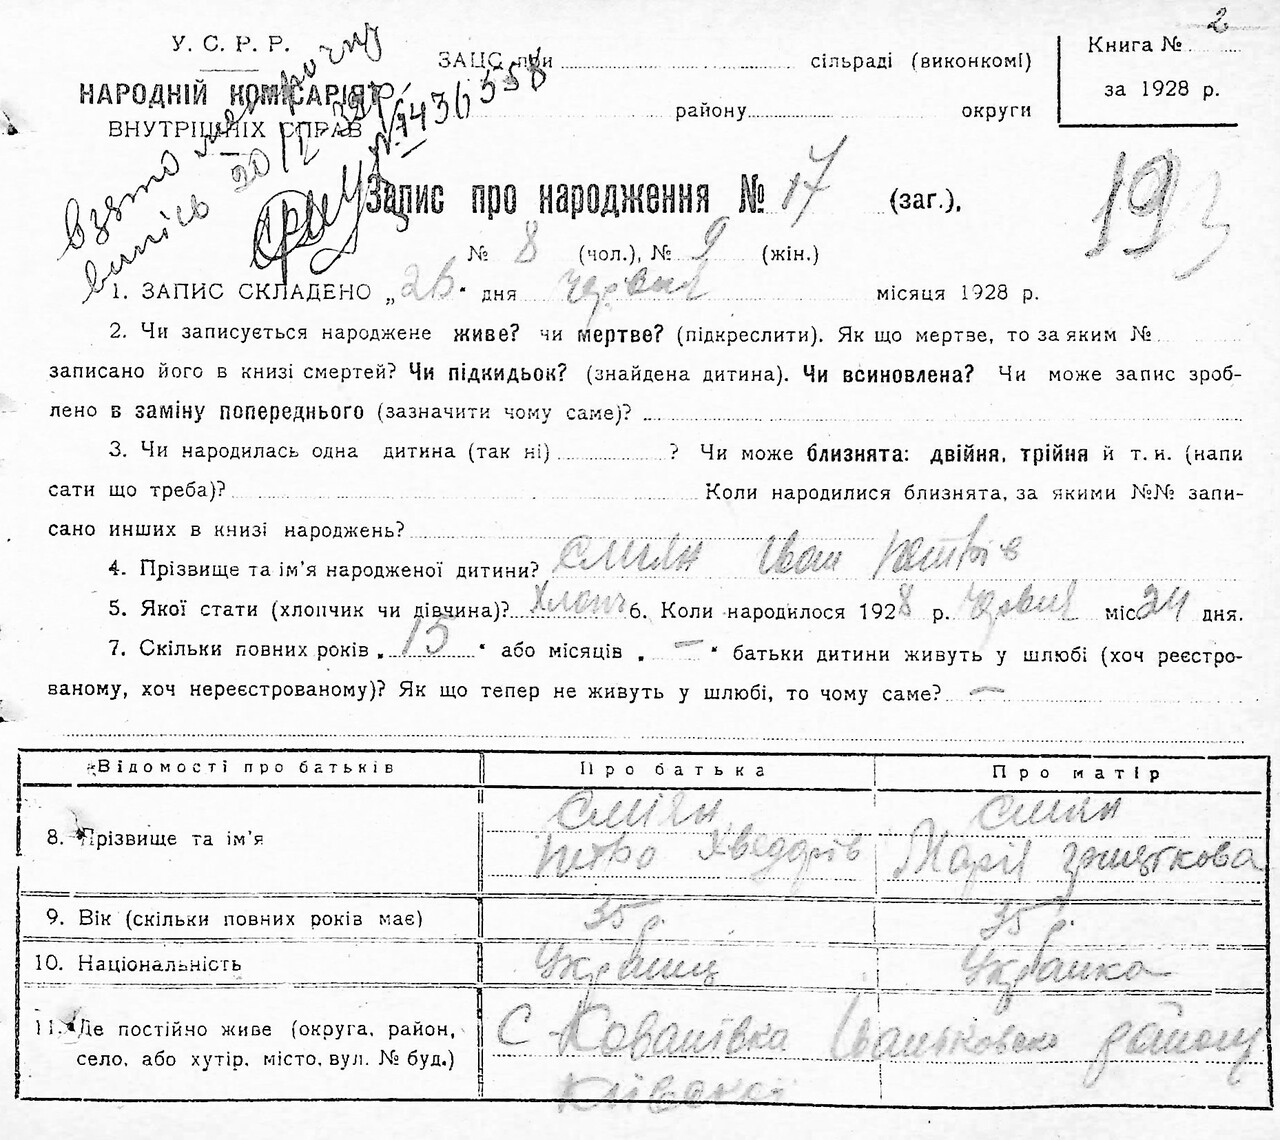 У. С. Р. Р.
НАРОДНІЙ КОМІСАРІЯТ
ВНУТРІШНІХ СПРАВ
Взято метрочну
випісь 20/
№ 1436558
ЗАЦС при сільраді (виконкомі)
району округи
Книга № 2
за 1928 р.
193
Запис про народження № 17 (заг.),
№ 8 (чол.), № 9 (жін.)
1. ЗАПИС СКЛАДЕНО „26" дня червня місяця 1928 р.
2. Чи записується народжене живе? чи мертве? (підкреслити). Як що мертве, то за яким №
записано його в книзі смертей? Чи підкидьок? (знайдена дитина). Чи всиновлена? Чи може запис зроб-
лено в заміну попереднього (зазначити чому саме)?
3. Чи народилась одна дитина (так ні) ? Чи може близнята: двійня, трійня й т. и. (напи
сати що треба)? Коли народилися близнята, за якими №№ запи-
сано инших в книзі народжень?
4. Прізвище та ім’я народженої дитини? Сміян Іван Петрів
5. Якої стати (хлопчик чи дівчина)? Хлопч 6. Коли народилося 1928 р. червня міс 24 дня.
7. Скільки повних років „ 15 " або місяців „ — " батьки дитини живуть у шлюбі (хоч реєстро-
ваному, хоч нереєстрованому)? Як що тепер не живуть у шлюбі, то чому саме? —
Відомості про батьків Про батька Про матір
8. Прізвище та ім’я Сміян Сміян
Петро Хведорів Марія
9. Вік (скільки повних років має) 35 р. 35 р.
10. Національність Українец Українка
11. Де постійно живе (округа, район,
село, або хутір, місто, вул. № буд.)
С Кованівка Іваньковсько району
Київської